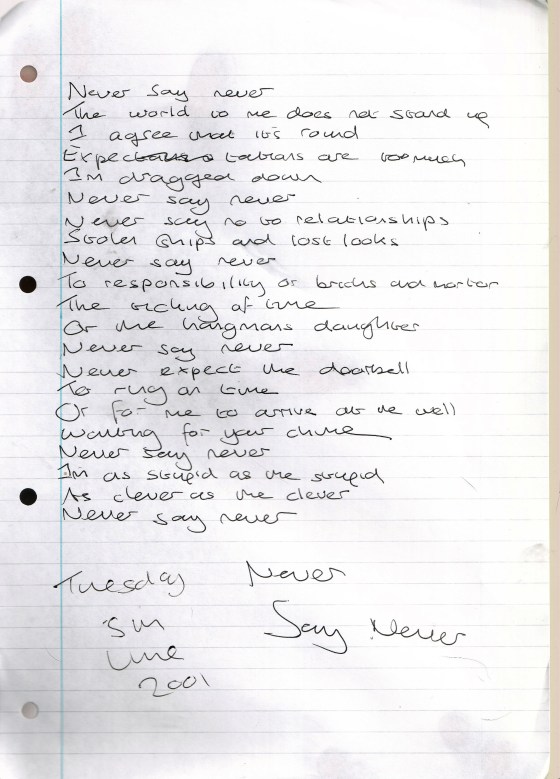 Never say never
The world to me does not stand up
I agree that it's round
Expectations are too much
I'm dragged down
Never say never
Never say no to relationships
Stolen ships and lost looks
Never say never
To responsibility or bricks and mortar
The ticking of time
Or the hangmans daughter
Never say never
Never expect the doorbell
To ring on time
Or for me to arrive at the well
Waiting for your chime
Never say never
I'm as stupid as the stupid
As clever as the clever
Never say never
Tuesday Never
5th Say Never
June
2001